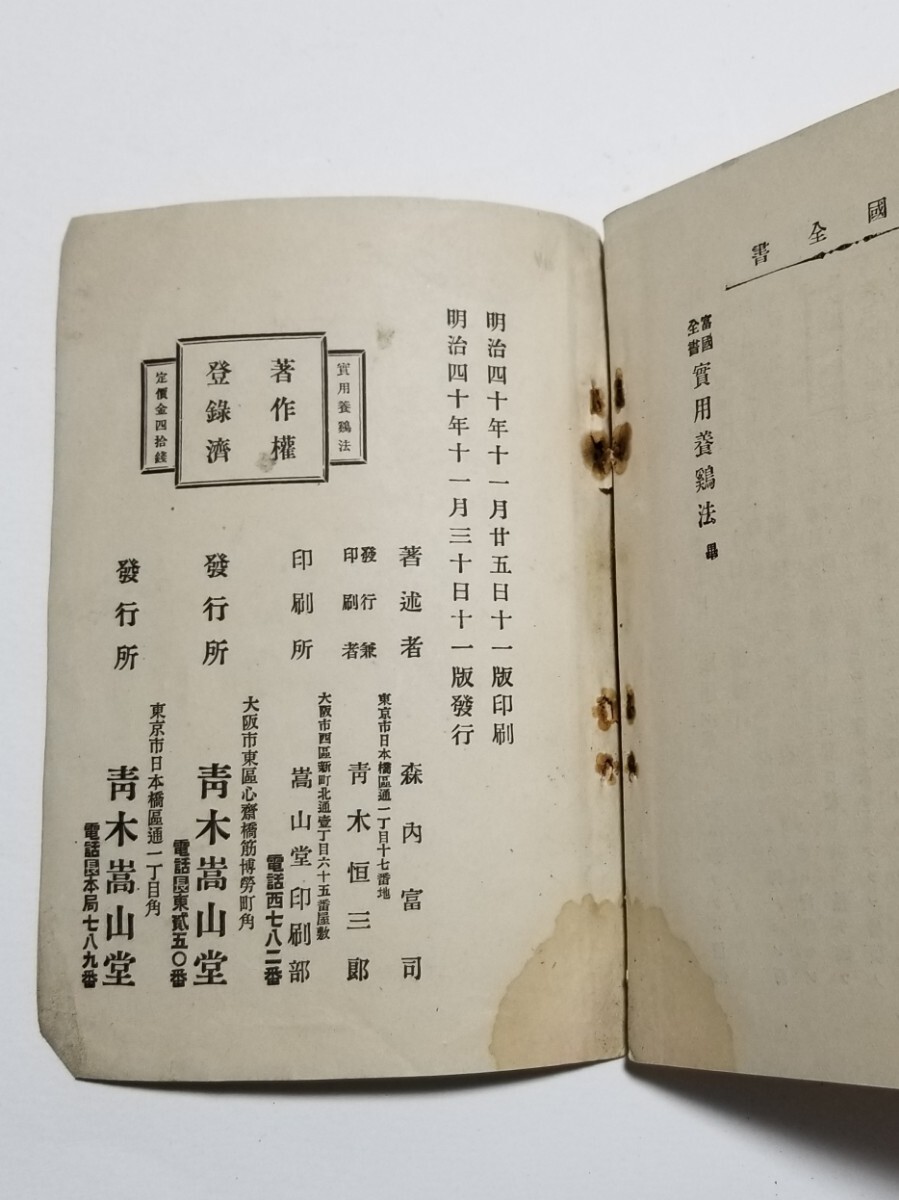 國全書
富國全書
實用養鷄法 畢
明治四十年十一月廿五日十一版印刷
明治四十年十一月三十日十一版發行
實用養鷄法
著作權
登錄濟
定價金四拾錢
著述者 森内富司
東京市日本橋區通一丁目十七番地
發行兼印刷者 靑木恒三郎
大阪市西區新町北通壹丁目六十五番屋敷
印刷所 嵩山堂印刷部
電話西七八二番
大阪市東區心齋橋筋博勞町角
發行所 靑木嵩山堂
電話長東貳五〇番
東京市日本橋區通一丁目角
發行所 靑木嵩山堂
電話長本局七八九番